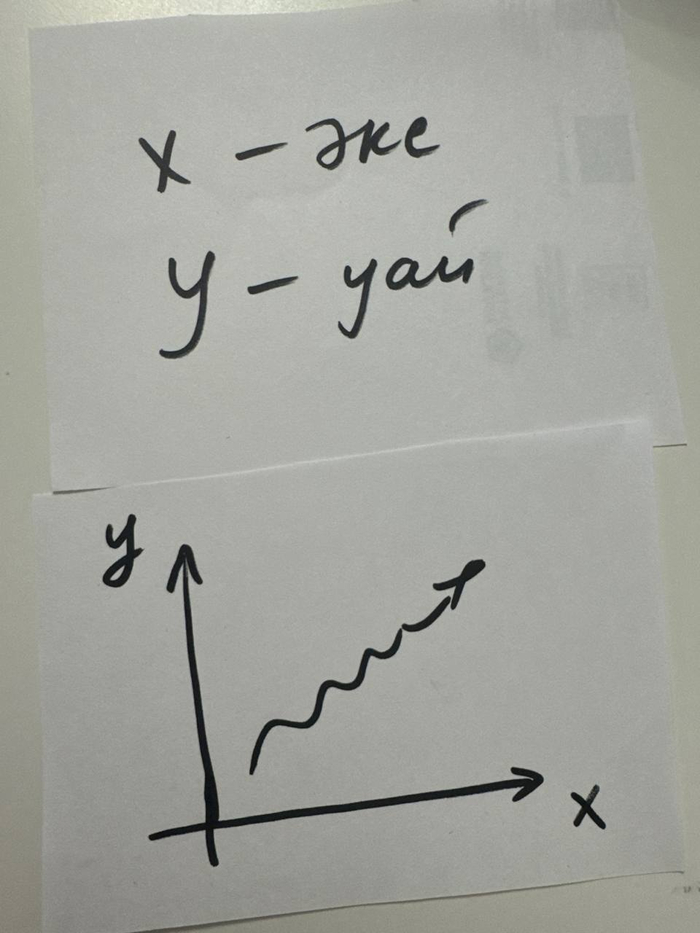 x – экс
y – уай
y
x